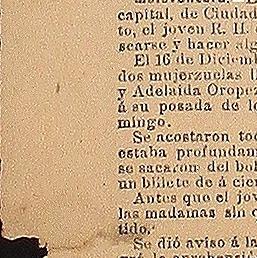 capital, de Ciudad
to, el joven R. H.
scarse y hacer alg
El 16 de Diciem
dos mujerzuelas
y Adelaida Orope
á su posada de l
mingo.
Se acostaron to
estaba profundam
se sacaron del bol
un billete de á cie
Antes que el jov
las madamas sin
tido.
Se dió aviso á la